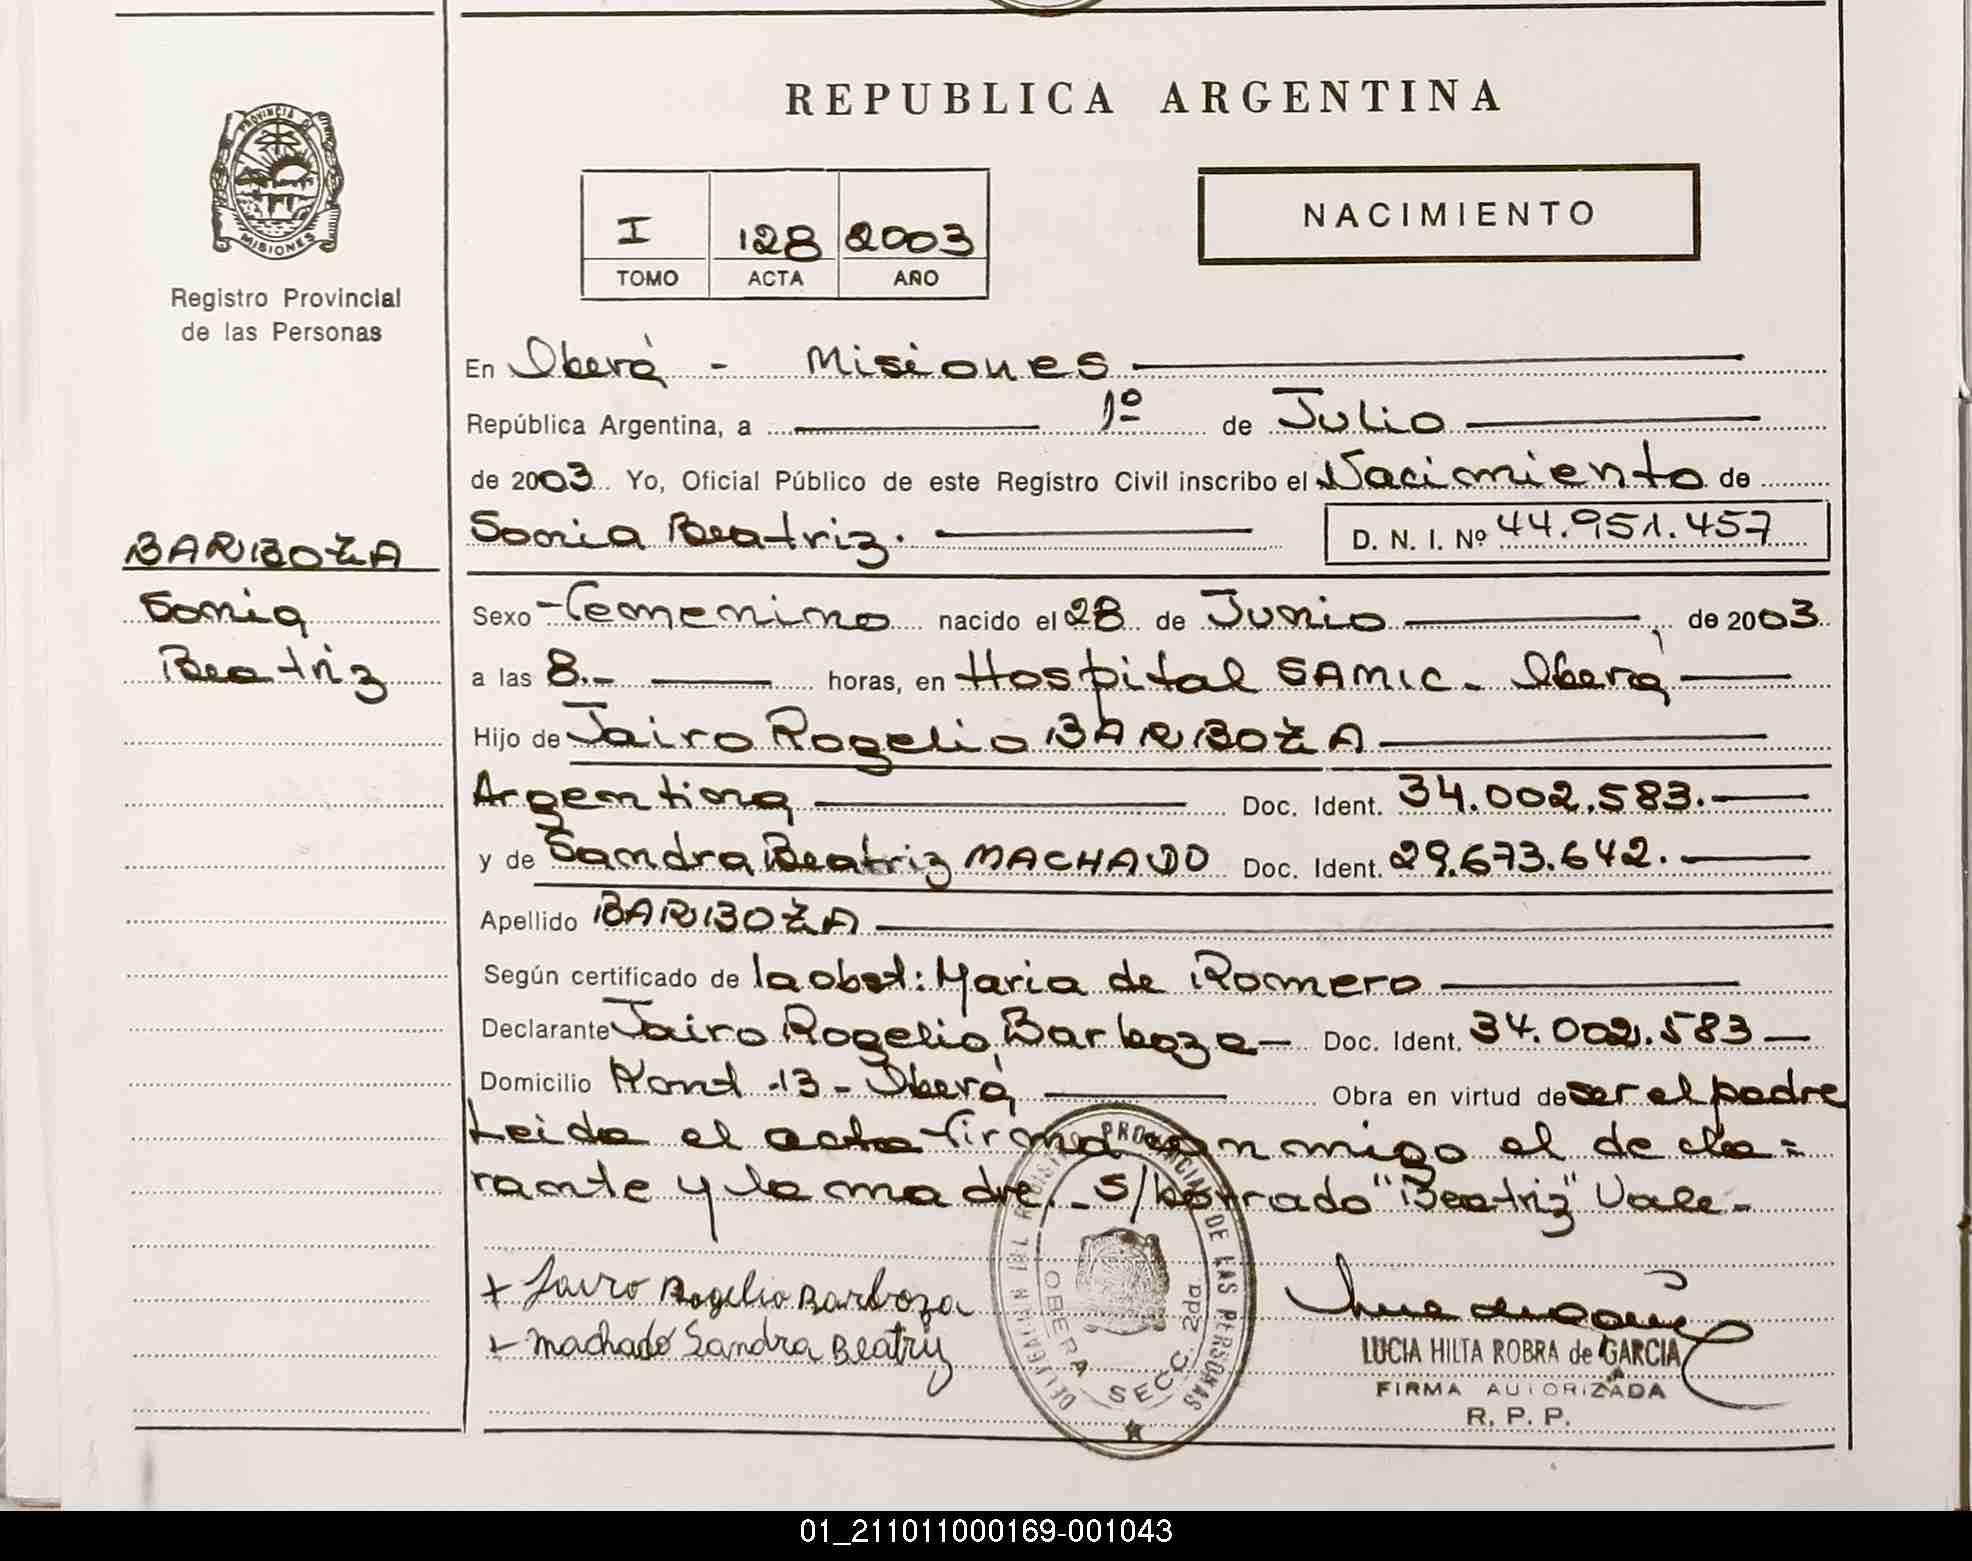 REPUBLICA ARGENTINA
PROVINCIA DE
MISIONES
Registro Provincial
de las Personas
I 128 2003
TOMO ACTA AÑO
NACIMIENTO
En Oberá - Misiones
República Argentina, a 1º de Julio
de 2003 Yo, Oficial Público de este Registro Civil inscribo el Nacimiento de
Sonia Beatriz. D. N. I. Nº 44.951.457
BARBOZA
Sonia
Beatriz
Sexo Femenino nacido el 28 de Junio de 2003
a las 8.- horas, en Hospital SAMIC - Oberá
Hijo de Jairo Rogelio BARBOZA
Argentina Doc. Ident. 34.002.583.
y de Sandra Beatriz MACHADO Doc. Ident. 29.673.642.
Apellido BARBOZA
Según certificado de la obst: Maria de Romero
Declarante Jairo Rogelio Barboza Doc. Ident. 34.002.583
Domicilio Oberá Obra en virtud de ser el padre
Leida el acta firma conmigo el decla=
rante y la madre.- S/borrado "Beatriz" Vale.-
+ Jairo Rogelio Barboza
+ Machado Sandra Beatriz
PROVINCIAL DE LAS PERSONAS
OBERA SECC. 2da
LUCIA HILTA ROBRA de GARCIA
FIRMA AUTORIZADA
R. P. P.
01_211011000169-001043